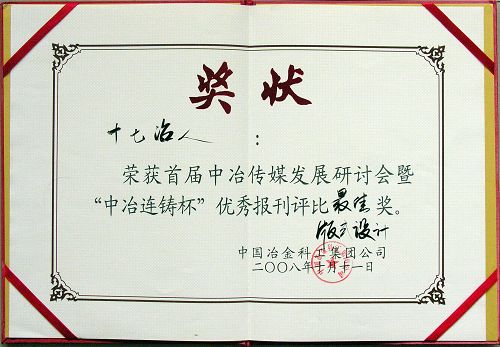 奖状
十七冶人：
荣获首届中冶传媒发展研讨会暨
“中冶连铸杯”优秀报刊评比最佳奖。
版面设计
中国冶金科工集团公司
二〇〇八年十月十一日